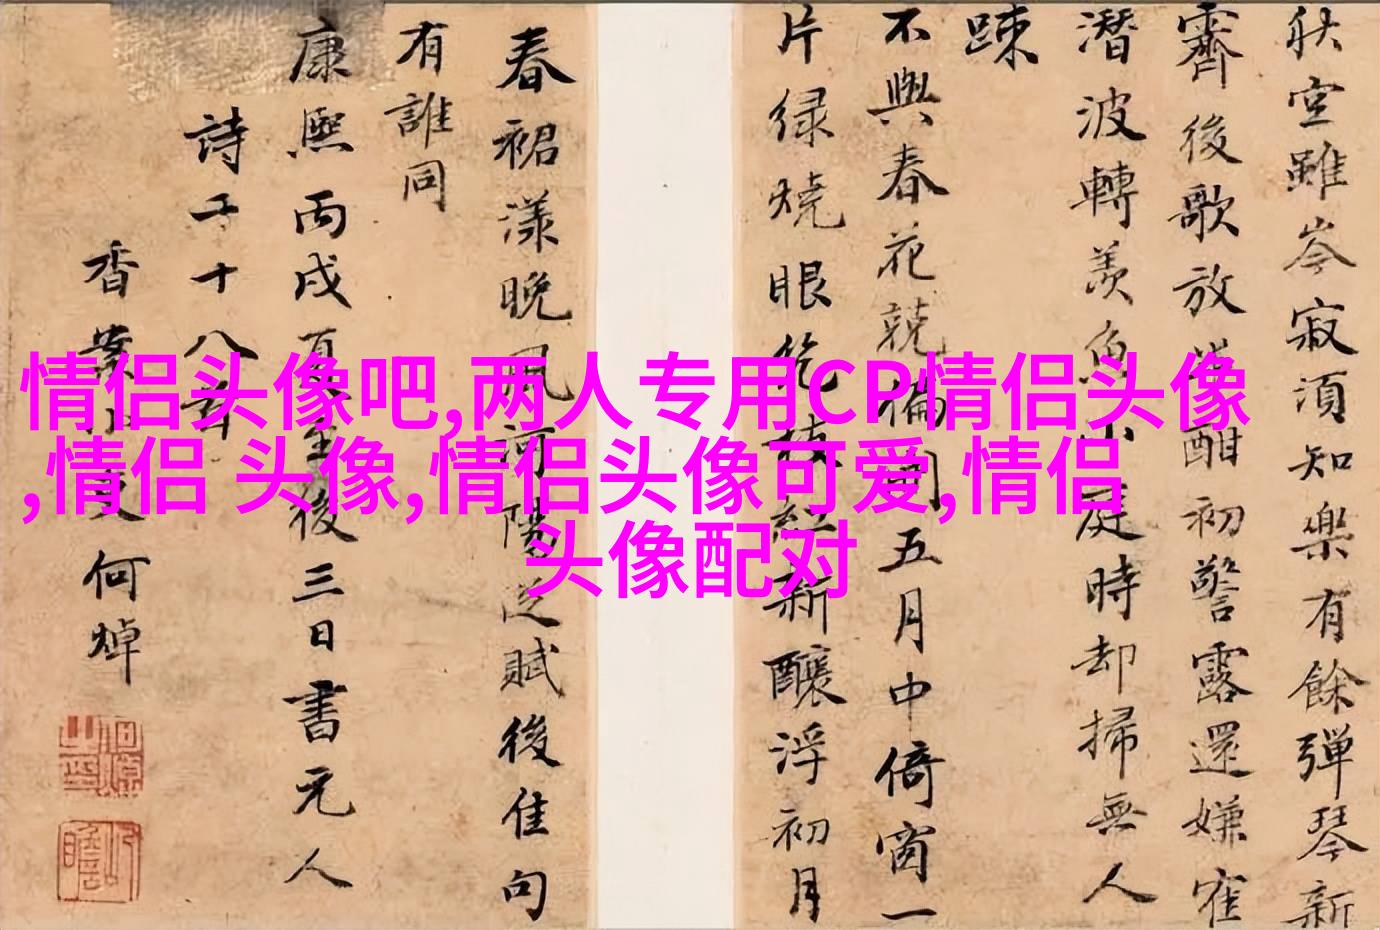 秋空雖岑寂須知樂有餘彈琴新
霽後歌放酣初警露還嫌
潛波轉羨魚小庭時却掃無人
踈
不與春花競偏開五月中倚窗一
片绿燒眼幾枝紅新釀浮初月
春裙漾晚風河陽足賦後佳句
有誰同
康熙丙戌夏至後三日書元人
詩二十八首
香業小史何焯
情侣头像吧,两人专用CP情侣头像
,情侣 头像,情侣头像可爱,情侣
头像配对